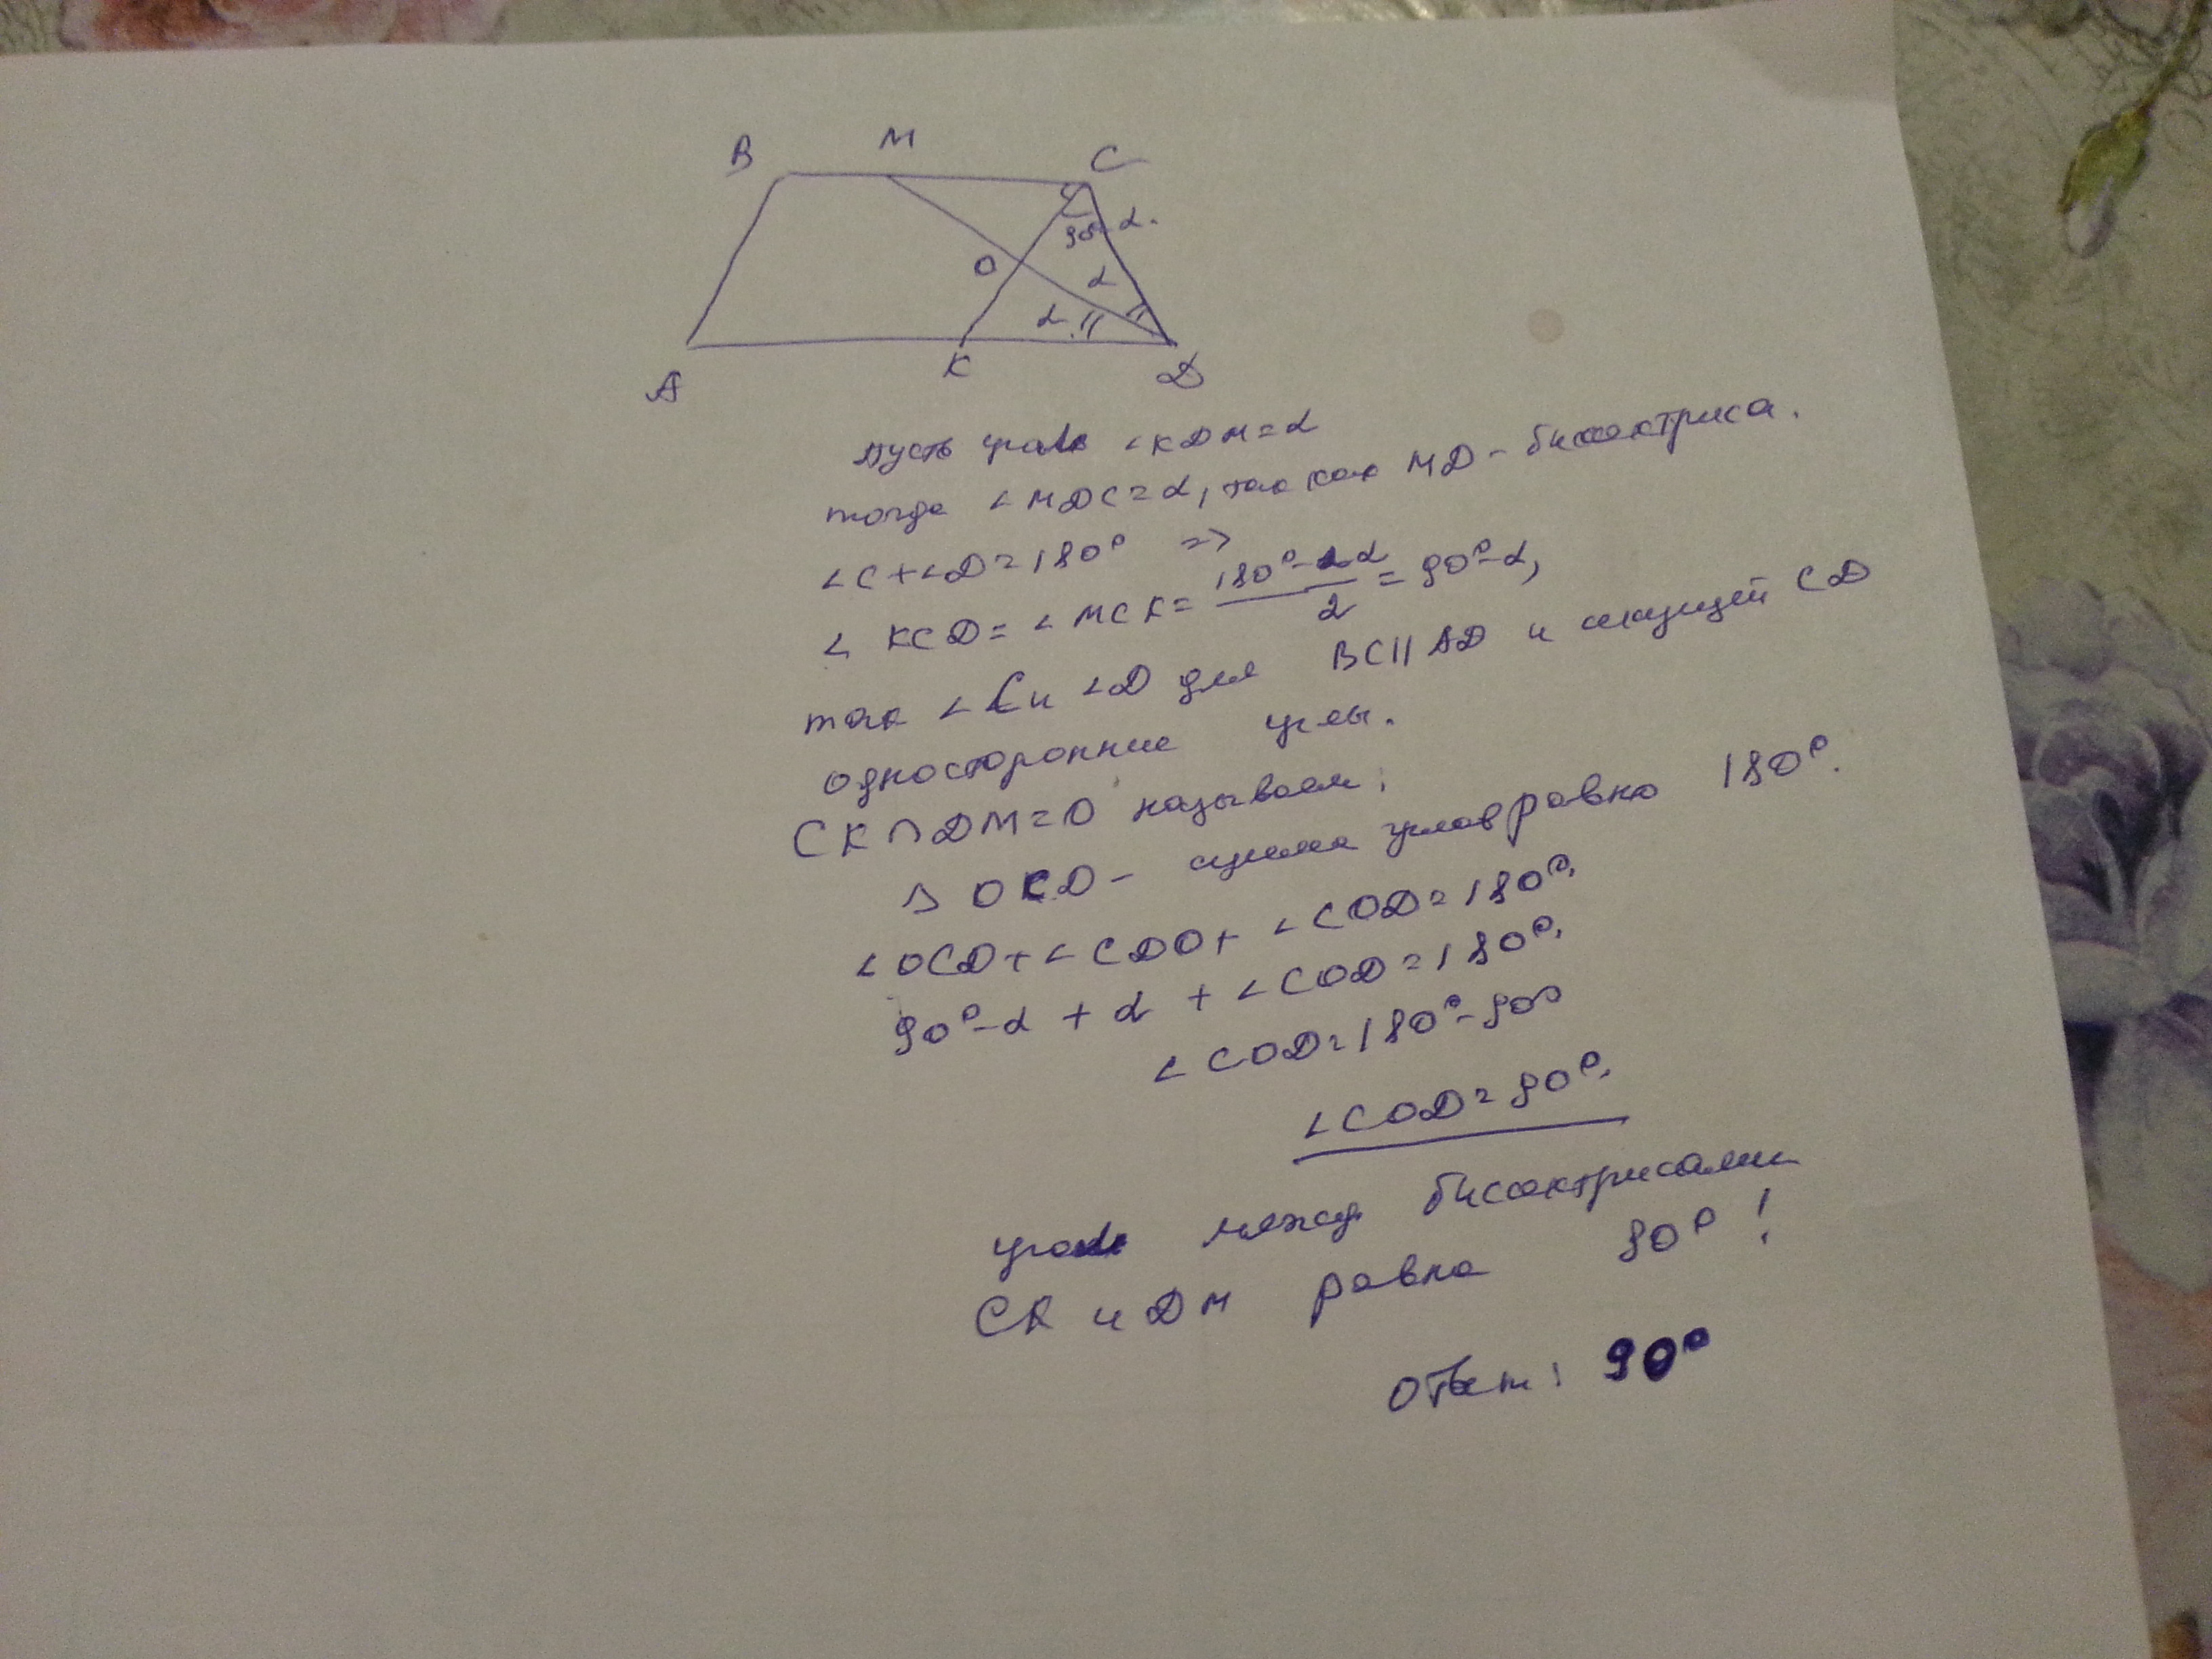 B M C
90-α.
O α
α
A K D
Пусть угол ∠KDM=α
тогда ∠MDC=α, так как MD - биссектриса.
∠C+∠D=180° =>
∠KCD=∠MCK=(180°-2α)/2=90°-α,
так ∠C и ∠D для BC||AD и секущей CD
односторонние углы.
CK∩DM=O называем.
Δ OCD - сумма углов равна 180°.
∠OCD+∠CDO+∠COD=180°.
90°-α+α+∠COD=180°.
∠COD=180°-90°
∠COD=90°.
угол между биссектрисами
CK и DM равна 90°!
Ответ: 90°